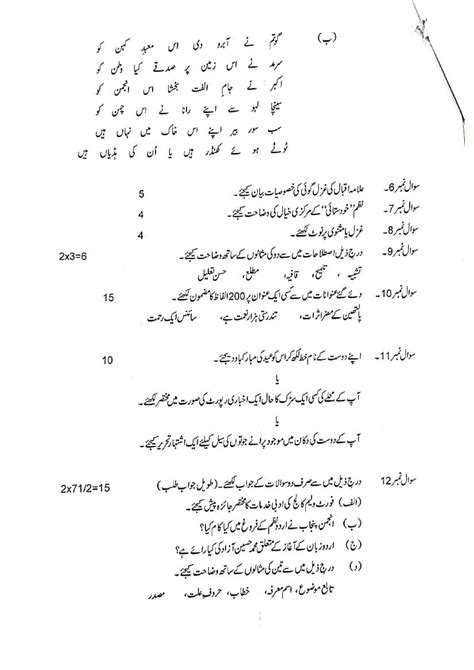 (ب) گوتم نے آبرو دی اس معبد کہن کو
سرمد نے اس زمین پر صدقے کیا وطن کو
اکبر نے جام الفت بخشا اس انجمن کو
سینچا لہو سے اپنے رانا نے اس چمن کو
سب سور بیر اپنے اس خاک میں نہاں ہیں
ٹوٹے ہوئے کھنڈر ہیں یا اُن کی ہڈیاں ہیں
سوال نمبر6۔ علامہ اقبال کی غزل گوئی کی خصوصیات بیان کیجئے۔ 5
سوال نمبر7۔ نظم "خودستائی" کے مرکزی خیال کی وضاحت کیجئے۔ 4
سوال نمبر8۔ غزل یا مثنوی پر نوٹ لکھئے۔ 4
سوال نمبر9۔ درج ذیل اصطلاحات میں سے دو کی مثالوں کے ساتھ وضاحت کیجئے۔ 2x3=6
تشبیہ ، تلمیح، قافیہ، مطلع، حسن تعلیل
سوال نمبر10۔ دئے گئے عنوانات میں سے کسی ایک عنوان پر 200 الفاظ کا مضمون لکھئے۔ 15
پالتھین کے مضر اثرات، تندرستی ہزار نعمت ہے، سائنس ایک رحمت
سوال نمبر11۔ اپنے دوست کے نام خط لکھ کر اس کو عید کی مبارکباد دیجئے۔ 10
یا
آپ کے محلے کی کسی ایک سڑک کا حال ایک اخباری رپورٹ کی صورت میں مختصر لکھئے۔
یا
آپ کے دوست کی دکان میں موجود پرانے جوتوں کی سیل کیلئے ایک اشتہار تحریر کیجئے۔
سوال نمبر12 درج ذیل میں سے صرف دو سوالات کے جواب لکھئے۔ (طویل جواب طلب) 2x71/2=15
(الف) فورٹ ولیم کالج کی ادبی خدمات کا مختصر جائزہ پیش کیجئے۔
(ب) انجمن پنجاب نے اردو نظم کے فروغ میں کیا کام کیا؟
(ج) اردو زبان کے آغاز کے متعلق محمد حسین آزاد کی کیا رائے ہے؟
(د) درج ذیل میں سے تین کی مثالوں کے ساتھ وضاحت کیجئے۔
تابع موضوع، اسم معرفہ، خطاب، حروف علت، مصدر